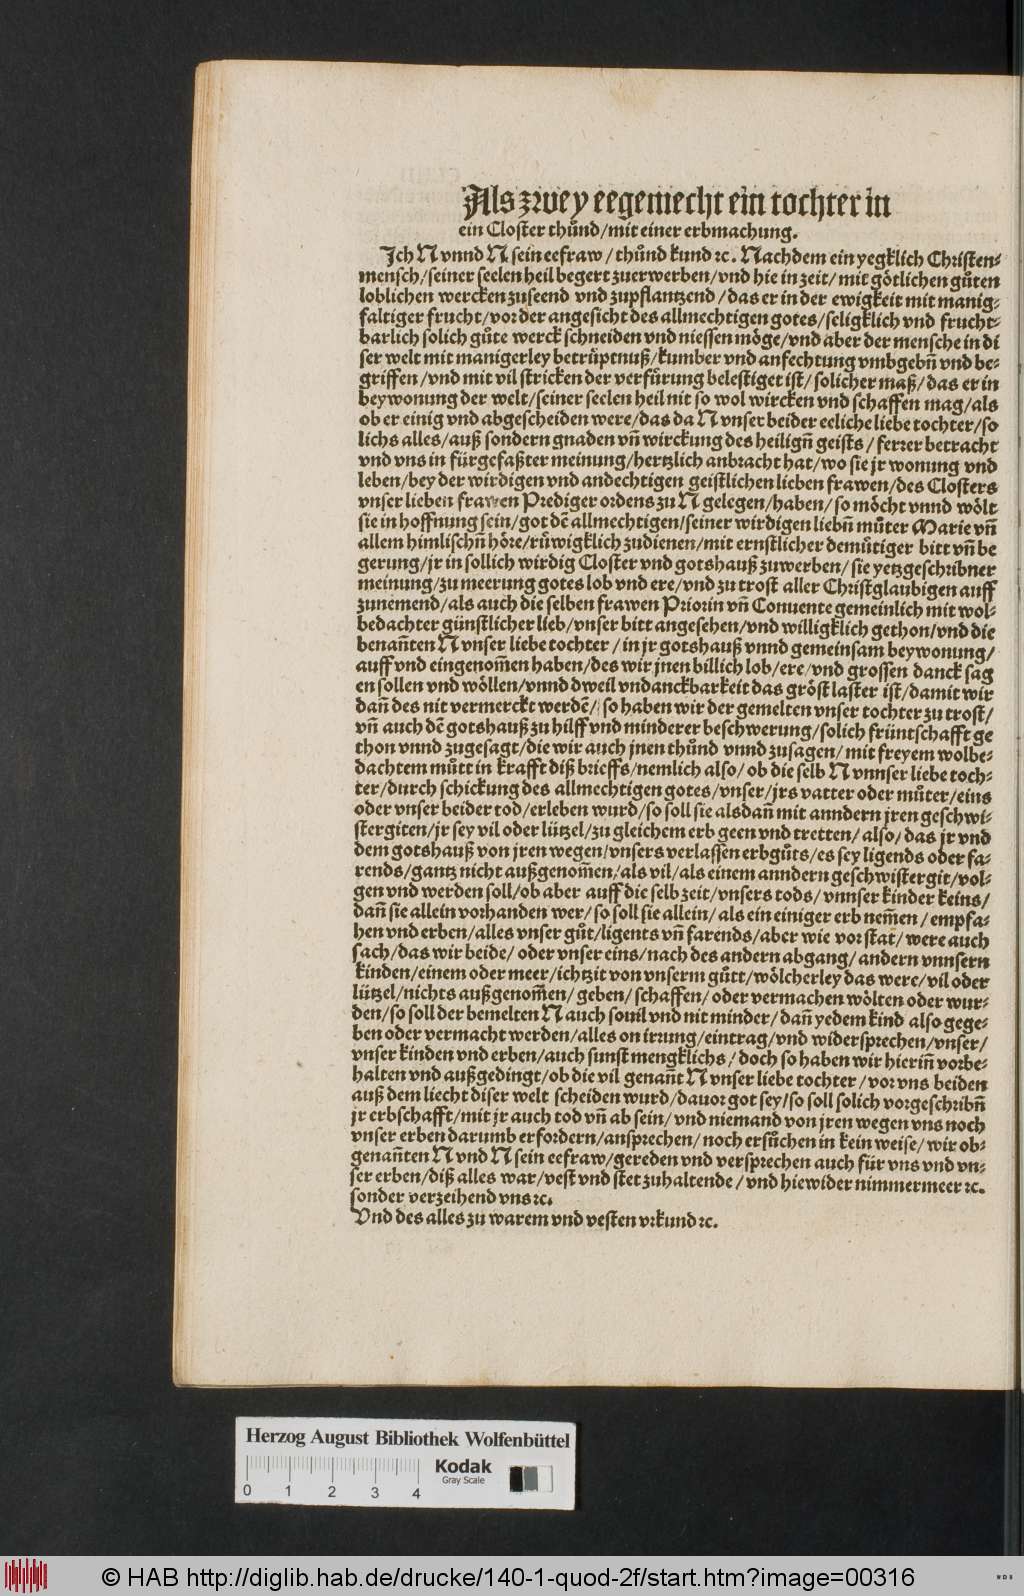 Als zwey eegemecht ein tochter in
ein Closter thůnd/mit einer erbmachung.
Ich N vnnd N sein eefraw / thůnd kund ꝛc. Nachdem ein yegklich Christen-
mensch/seiner seelen heil begert zuerwerben/vnd hie in zeit/mit götlichen gůten
loblichen wercken zuseend vnd zupflantzend/das er in der ewigkeit mit manig-
faltiger frucht/vor der angesicht des allmechtigen gotes/seligklich vnd frucht-
barlich solich gůte werck schneiden vnd niessen möge/vnd aber der mensche in di
ser welt mit manigerley betrüptnuß/kumber vnd anfechtung vmbgebn̄ vnd be-
griffen/vnd mit vil stricken der verfůrung belestiget ist/solicher maß/das er in
beywonung der welt/seiner seelen heil nit so wol wircken vnd schaffen mag/als
ob er einig vnd abgescheiden were/das da N vnser beider eeliche liebe tochter/so
lichs alles/auß sondern gnaden vn̄ wirckung des heilign̄ geists/ferrer betracht
vnd vns in fürgefaßter meinung/hertzlich anbracht hat/wo sie jr wonung vnd
leben/bey der wirdigen vnd andechtigen geistlichen lieben frawen/des Closters
vnser lieben frawen Prediger ordens zu N gelegen/haben/so möcht vnnd wölt
sie in hoffnung sein/got dē allmechtigen/seiner wirdigen liebn̄ můter Marie vn̄
allem himlischn̄ höre/růwigklich zudienen/mit ernstlicher demůtiger bitt vn̄ be
gerung/jr in sollich wirdig Closter vnd gotshauß zuwerben/sie yetzgeschribner
meinung/zu meerung gotes lob vnd ere/vnd zu trost aller Christglaubigen auff
zunemend/als auch die selben frawen Priorin vn̄ Conuente gemeinlich mit wol-
bedachter günstlicher lieb/vnser bitt angesehen/vnd willigklich gethon/vnd die
benan̄ten N vnser liebe tochter/in jr gotshauß vnnd gemeinsam beywonung/
auff vnd eingenom̄en haben/des wir jnen billich lob/ere/vnd grossen danck sag
en sollen vnd wöllen/vnnd dweil vndanckbarkeit das gröst laster ist/damit wir
dan̄ des nit vermerckt werdē/so haben wir der gemelten vnser tochter zu trost/
vn̄ auch dē gotshauß zu hilff vnd minderer beschwerung/solich früntschafft ge
thon vnnd zugesagt/die wir auch jnen thůnd vnnd zusagen/mit freyem wolbe-
dachtem můtt in krafft diß brieffs/nemlich also/ob die selb N vnnser liebe toch-
ter/durch schickung des allmechtigen gotes/vnser/jrs vatter oder můter/eins
oder vnser beider tod/erleben wurd/so soll sie alsdan̄ mit anndern jren geschwi-
stergiten/jr sey vil oder lützel/zu gleichem erb geen vnd tretten/also/das jr vnd
dem gotshauß von jren wegen/vnsers verlassen erbgůts/es sey ligends oder fa-
rends/gantz nicht außgenom̄en/als vil/als einem anndern geschwistergit/vol-
gen vnd werden soll/ob aber auff die selb zeit/vnsers tods/vnnser kinder keins/
dan̄ sie allein vorhanden wer/so soll sie allein/als ein einiger erb nem̄en/empfa-
hen vnd erben/alles vnser gůt/ligents vn̄ farends/aber wie vor stat/were auch
sach/das wir beide/oder vnser eins/nach des andern abgang/andern vnnsern
kinden/einem oder meer/ichtzit von vnserm gůtt/wölcherley das were/vil oder
lützel/nichts außgenom̄en/geben/schaffen/oder vermachen wölten oder wur-
den/so soll der bemelten N auch souil vnd nit minder/dan̄ yedem kind also gege-
ben oder vermacht werden/alles on irrung/eintrag/vnd widersprechen/vnser/
vnser kinden vnd erben/auch sunst mengklichs/doch so haben wir hierin̄ vorbe-
halten vnd außgedingt/ob die vil genan̄t N vnser liebe tochter/vor vns beiden
auß dem liecht diser welt scheiden wurd/dauor got sey/so soll solich vorgeschribn̄
jr erbschafft/mit jr auch tod vn̄ ab sein/vnd niemand von jren wegen vns noch
vnser erben darumb erfordern/ansprechen/noch ersůchen in kein weise/wir ob-
genan̄ten N vnd N sein eefraw/gereden vnd versprechen auch für vns vnd vn-
ser erben/diß alles war/vest vnd stet zuhaltende/vnd hiewider nimmermeer ꝛc.
sonder verzeihend vns ꝛc.
Vnd des alles zu warem vnd vesten vrkund ꝛc.
Herzog August Bibliothek Wolfenbüttel
0 1 2 3 4
Kodak
Gray Scale
© HAB http://diglib.hab.de/drucke/140-1-quod-2f/start.htm?image=00316